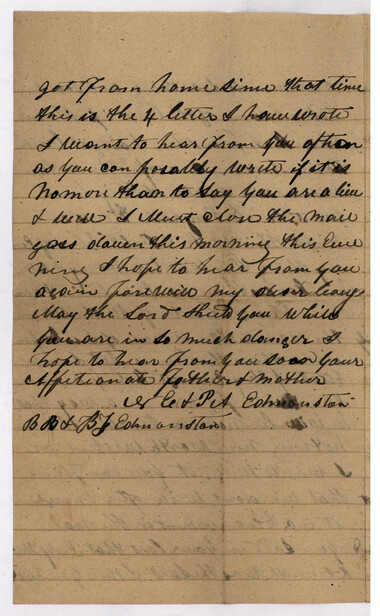 got from home sinse that time
this is the 4 letter I have wrote
I want to hear from you often
as you can posably write if it is
no mor than to say you are alive
& well I Must Close the mail
goes down this morning this Eve
ning I hope to hear from you
again farewell my dear boys
May the Lord Shield you while
you are in so much danger I
hope to hear from you soon your
Affectionate father & mother
& Edmonston
B B & B J Edmonston